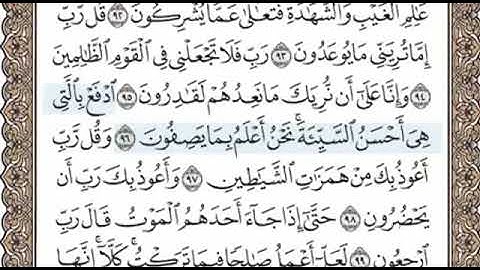 عَٰلِمِ ٱلْغَيْبِ وَٱلشَّهَٰدَةِ فَتَعَٰلَىٰ عَمَّا يُشْرِكُونَ ٩٢ قُل رَّبِّ
إِمَّا تُرِيَنِّى مَا يُوعَدُونَ ٩٣ رَبِّ فَلَا تَجْعَلْنِى فِى ٱلْقَوْمِ ٱلظَّٰلِمِينَ
٩٤ وَإِنَّا عَلَىٰٓ أَن نُّرِيَكَ مَا نَعِدُهُمْ لَقَٰدِرُونَ ٩٥ ٱدْفَعْ بِٱلَّتِى
هِىَ أَحْسَنُ ٱلسَّيِّئَةَ ۚ نَحْنُ أَعْلَمُ بِمَا يَصِفُونَ ٩٦ وَقُل رَّبِّ
أَعُوذُ بِكَ مِنْ هَمَزَٰتِ ٱلشَّيَٰطِينِ ٩٧ وَأَعُوذُ بِكَ رَبِّ أَن
يَحْضُرُونِ ٩٨ حَتَّىٰٓ إِذَا جَآءَ أَحَدَهُمُ ٱلْمَوْتُ قَالَ رَبِّ
ٱرْجِعُونِ ٩٩ لَعَلِّىٓ أَعْمَلُ صَٰلِحًا فِيمَا تَرَكْتُ ۚ كَلَّآ ۚ إِنَّهَا